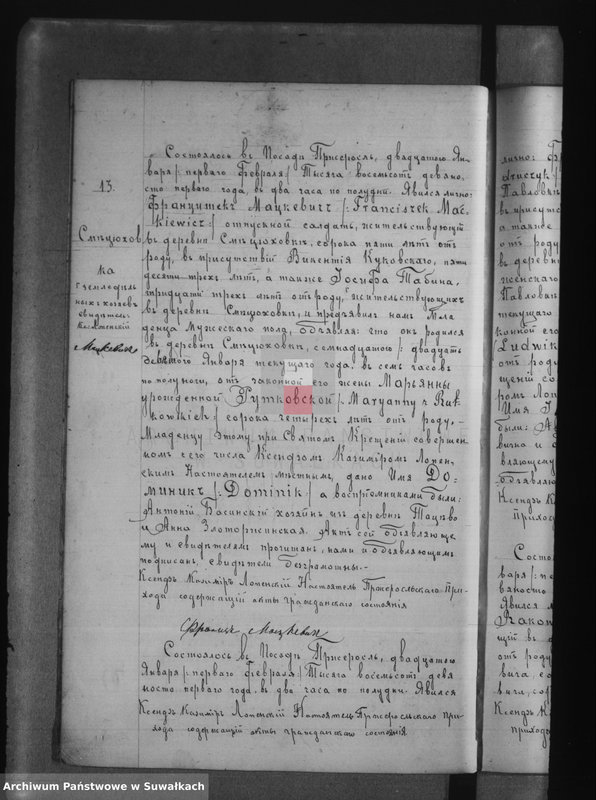 13.
Состоялось въ Посадѣ Пржеросль, двадцатого Ян-
варя /: перваго Февраля :/ Тысяча восемьсотъ девяно-
сто перваго года, въ два часа по полудни. Явился лично:
Францишек Мацкевичъ /: Franciszek Mac-
kiewicz :/ отпускной солдатъ, жительствующій
въ деревни Смѣцюховкѣ, сорока пяти лѣтъ отъ
роду, въ присутствіи Викентія Куковскаго, пяти
десяти трехъ лѣтъ, а также Іосифа Табина,
тридцати трехъ лѣтъ отъ роду, жительствующихъ
въ деревни Смѣцюховкѣ, и предъявилъ намъ Мла-
денца Мужескаго полу, объявляя: что онъ родился
въ деревни Смѣцюховкѣ, семнадцатого /: двадцать
девятого Января текущаго года, въ семь часовъ
по полуночи, отъ законной его жены Марьянны
урожденной Рутковской /: Maryanny z Rut-
kowskich :/ сорока четырехъ лѣтъ отъ роду. -
Младенцу этому, при Святомъ Крещеніи совершен-
номъ сего числа Ксендзомъ Казиміромъ Лопен-
скимъ Настоятелемъ мѣстнымъ, дано Имя До-
миникъ /: Dominik :/ а воспріемниками были:
Антоній Басинскій хозяинъ изъ деревни
и Анна Злоторжинская. Актъ сей объявляюще-
му и свидѣтелямъ прочитанъ, нами и объявляющимъ
подписанъ, свидѣтели безграмотны. -
Ксендзъ Казиміръ Лопенскій Настоятель Пржеросльскаго При-
хода содержащій акты гражданскаго состоянія
Мацкевич
Состоялось въ Посадѣ Пржеросль, двадцатого
Января /: перваго Февраля :/ Тысяча восемьсотъ девя
носто перваго года, въ два часа по полудни. Явился
Ксендзъ Казиміръ Лопенскій Настоятель Пржеросльскаго При-
хода содержащій акты гражданскаго состоянія
Смѣцюхов
ка
Мацкевич
лично: Ф
Павлови
въ присут
а также
отъ роду
въ деревн
женскаго
Павловк
текущаго
Ludwik
отъ роду
щеній со
ромъ Лоп
Имя
были:
вляющему
объявляю
Ксендзъ К
прихо
Состо
варя /: пе
вяносто
Явился
Ракон
щій въ д
отъ роду
Ксендзъ К
прихода
Archiwum Państwowe w Suwałkach